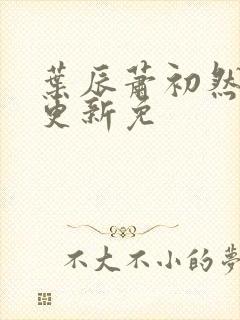 葉辰蕭初然
更新免
不大不小的夢